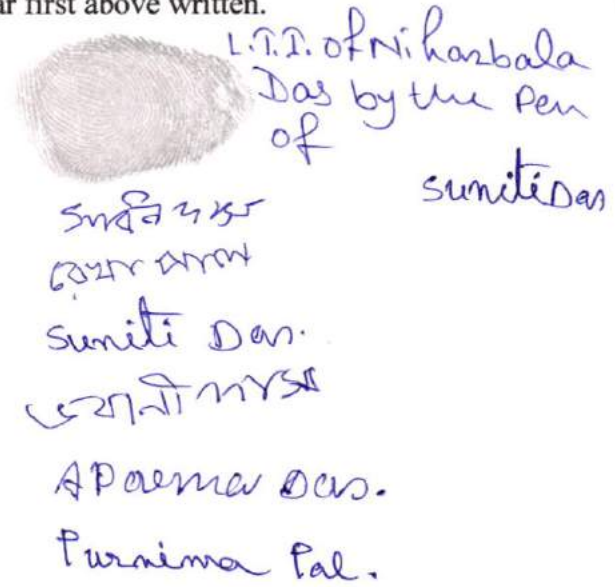 ar first above written.
L.T.I. of Niharbala
Das by the Pen
of
Suniti Das
রেখা পাল
Suniti Das.
Aparna Das.
Purnima Pal.